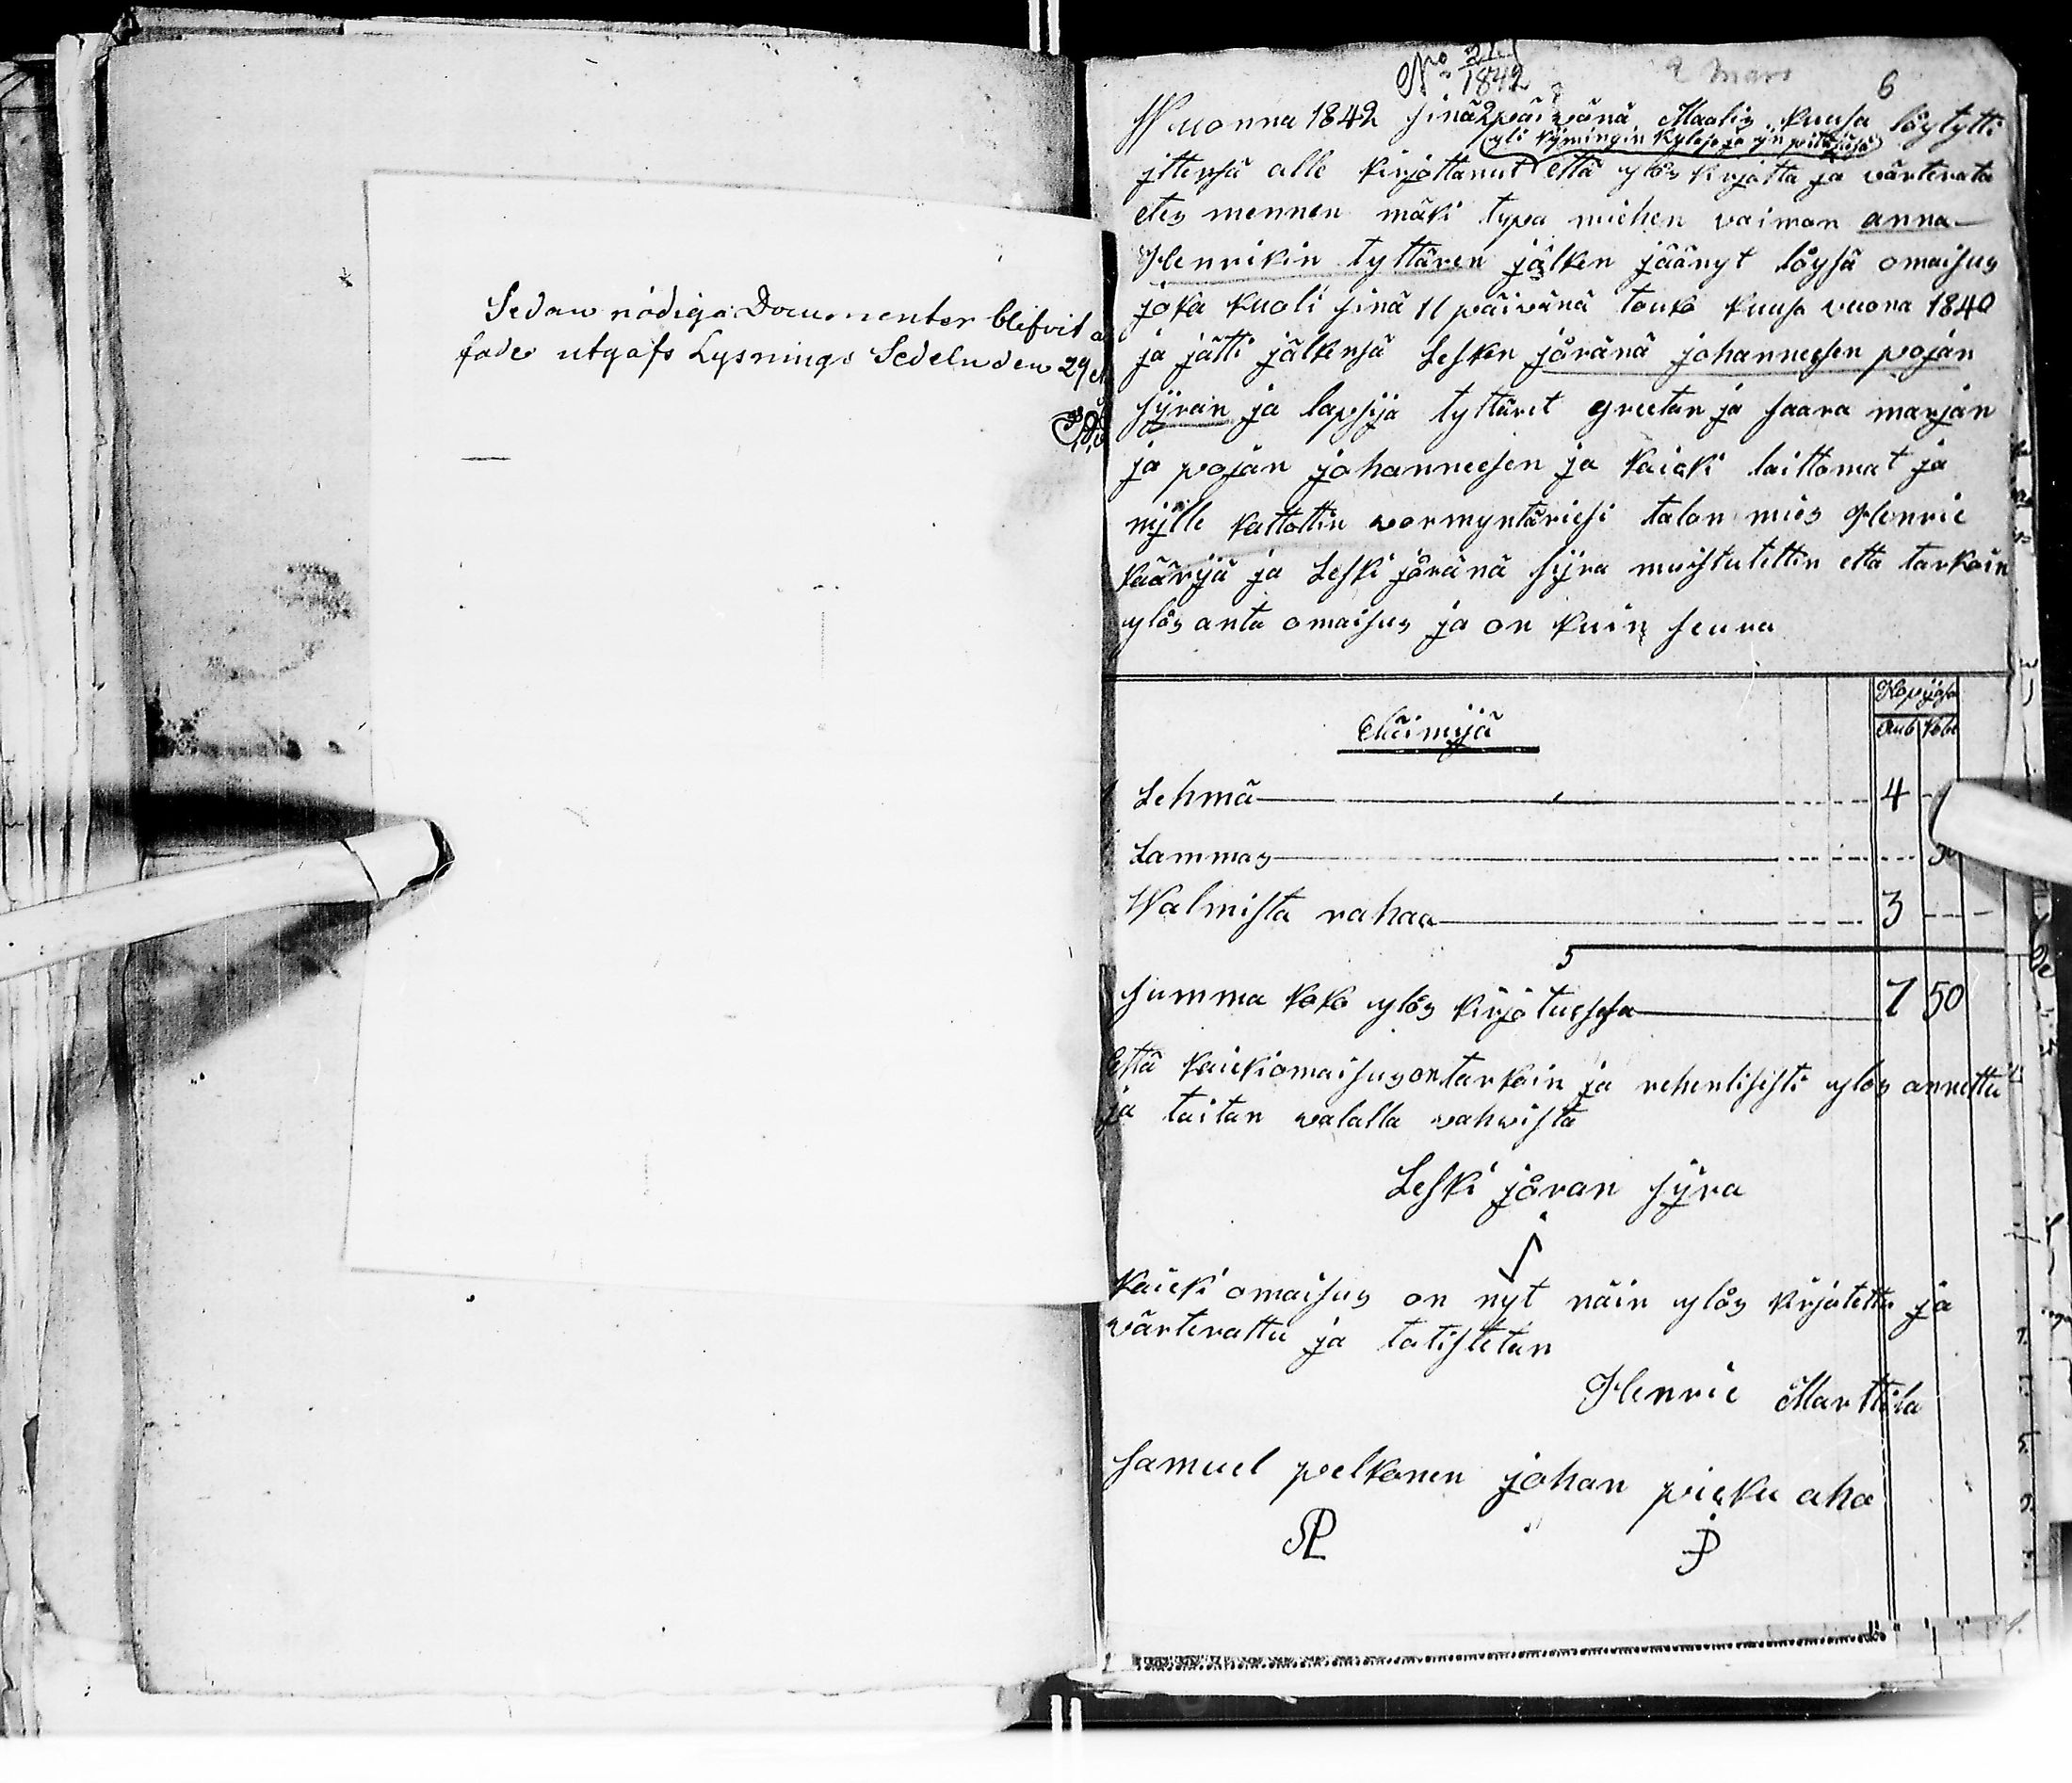 Sedan nödiga Documenter blifvit
fade utgafs Lysnings Sedeln den 29
No 24
1842
2 Mars
6
Wuonna 1842 sinä 2 päivänä Maalis kuusa löytytti
yli kÿmingin kyläsä ja ijn pittäjäsä
jttensä alle kirjottanut että ylös kirjotta ja värterata
etes mennen mäki typa miehen vaimon anna
Henrikin tyttären jälken jäänyt löysä omaisus
joka kuoli sinä 11 päivänä touko kuusa vuona 1840
ja jätti jälkensä Lesken jöränä johanneesen pojan
sÿran ja lapsija tyttäret greetan ja saara marjan
ja pojan johanneesen ja kaicki laittomat ja
nijlle kattottin vormyntäriesi talon mies Henric
kääriä ja Leski jöränä sÿra muistutettin että tarkoin
ylös anta omaisus ja on kuin seura
Hopijasa
Rub Kobe
Eläimijä
1 Lehmä 4
1 Lammas
Walmista rahaa 3
summa koko ylös kirjotuessa 7 50
Että kaickiomaisus on tarkoin ja rehenlisesti ylös annettu
ja taitan valalla vahvista
Leski jöran sÿra
kaicki omaisus on nyt näin ylös kirjotettu ja
värterattu ja totistetan
Henric Marttila
samuel pelkonen johan piekuaho
SP
JP